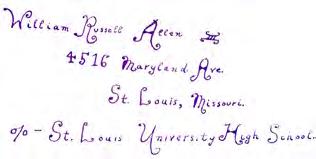 William Russell Allen III
4516 Maryland Ave.
St. Louis, Missouri.
% - St. Louis University High School.